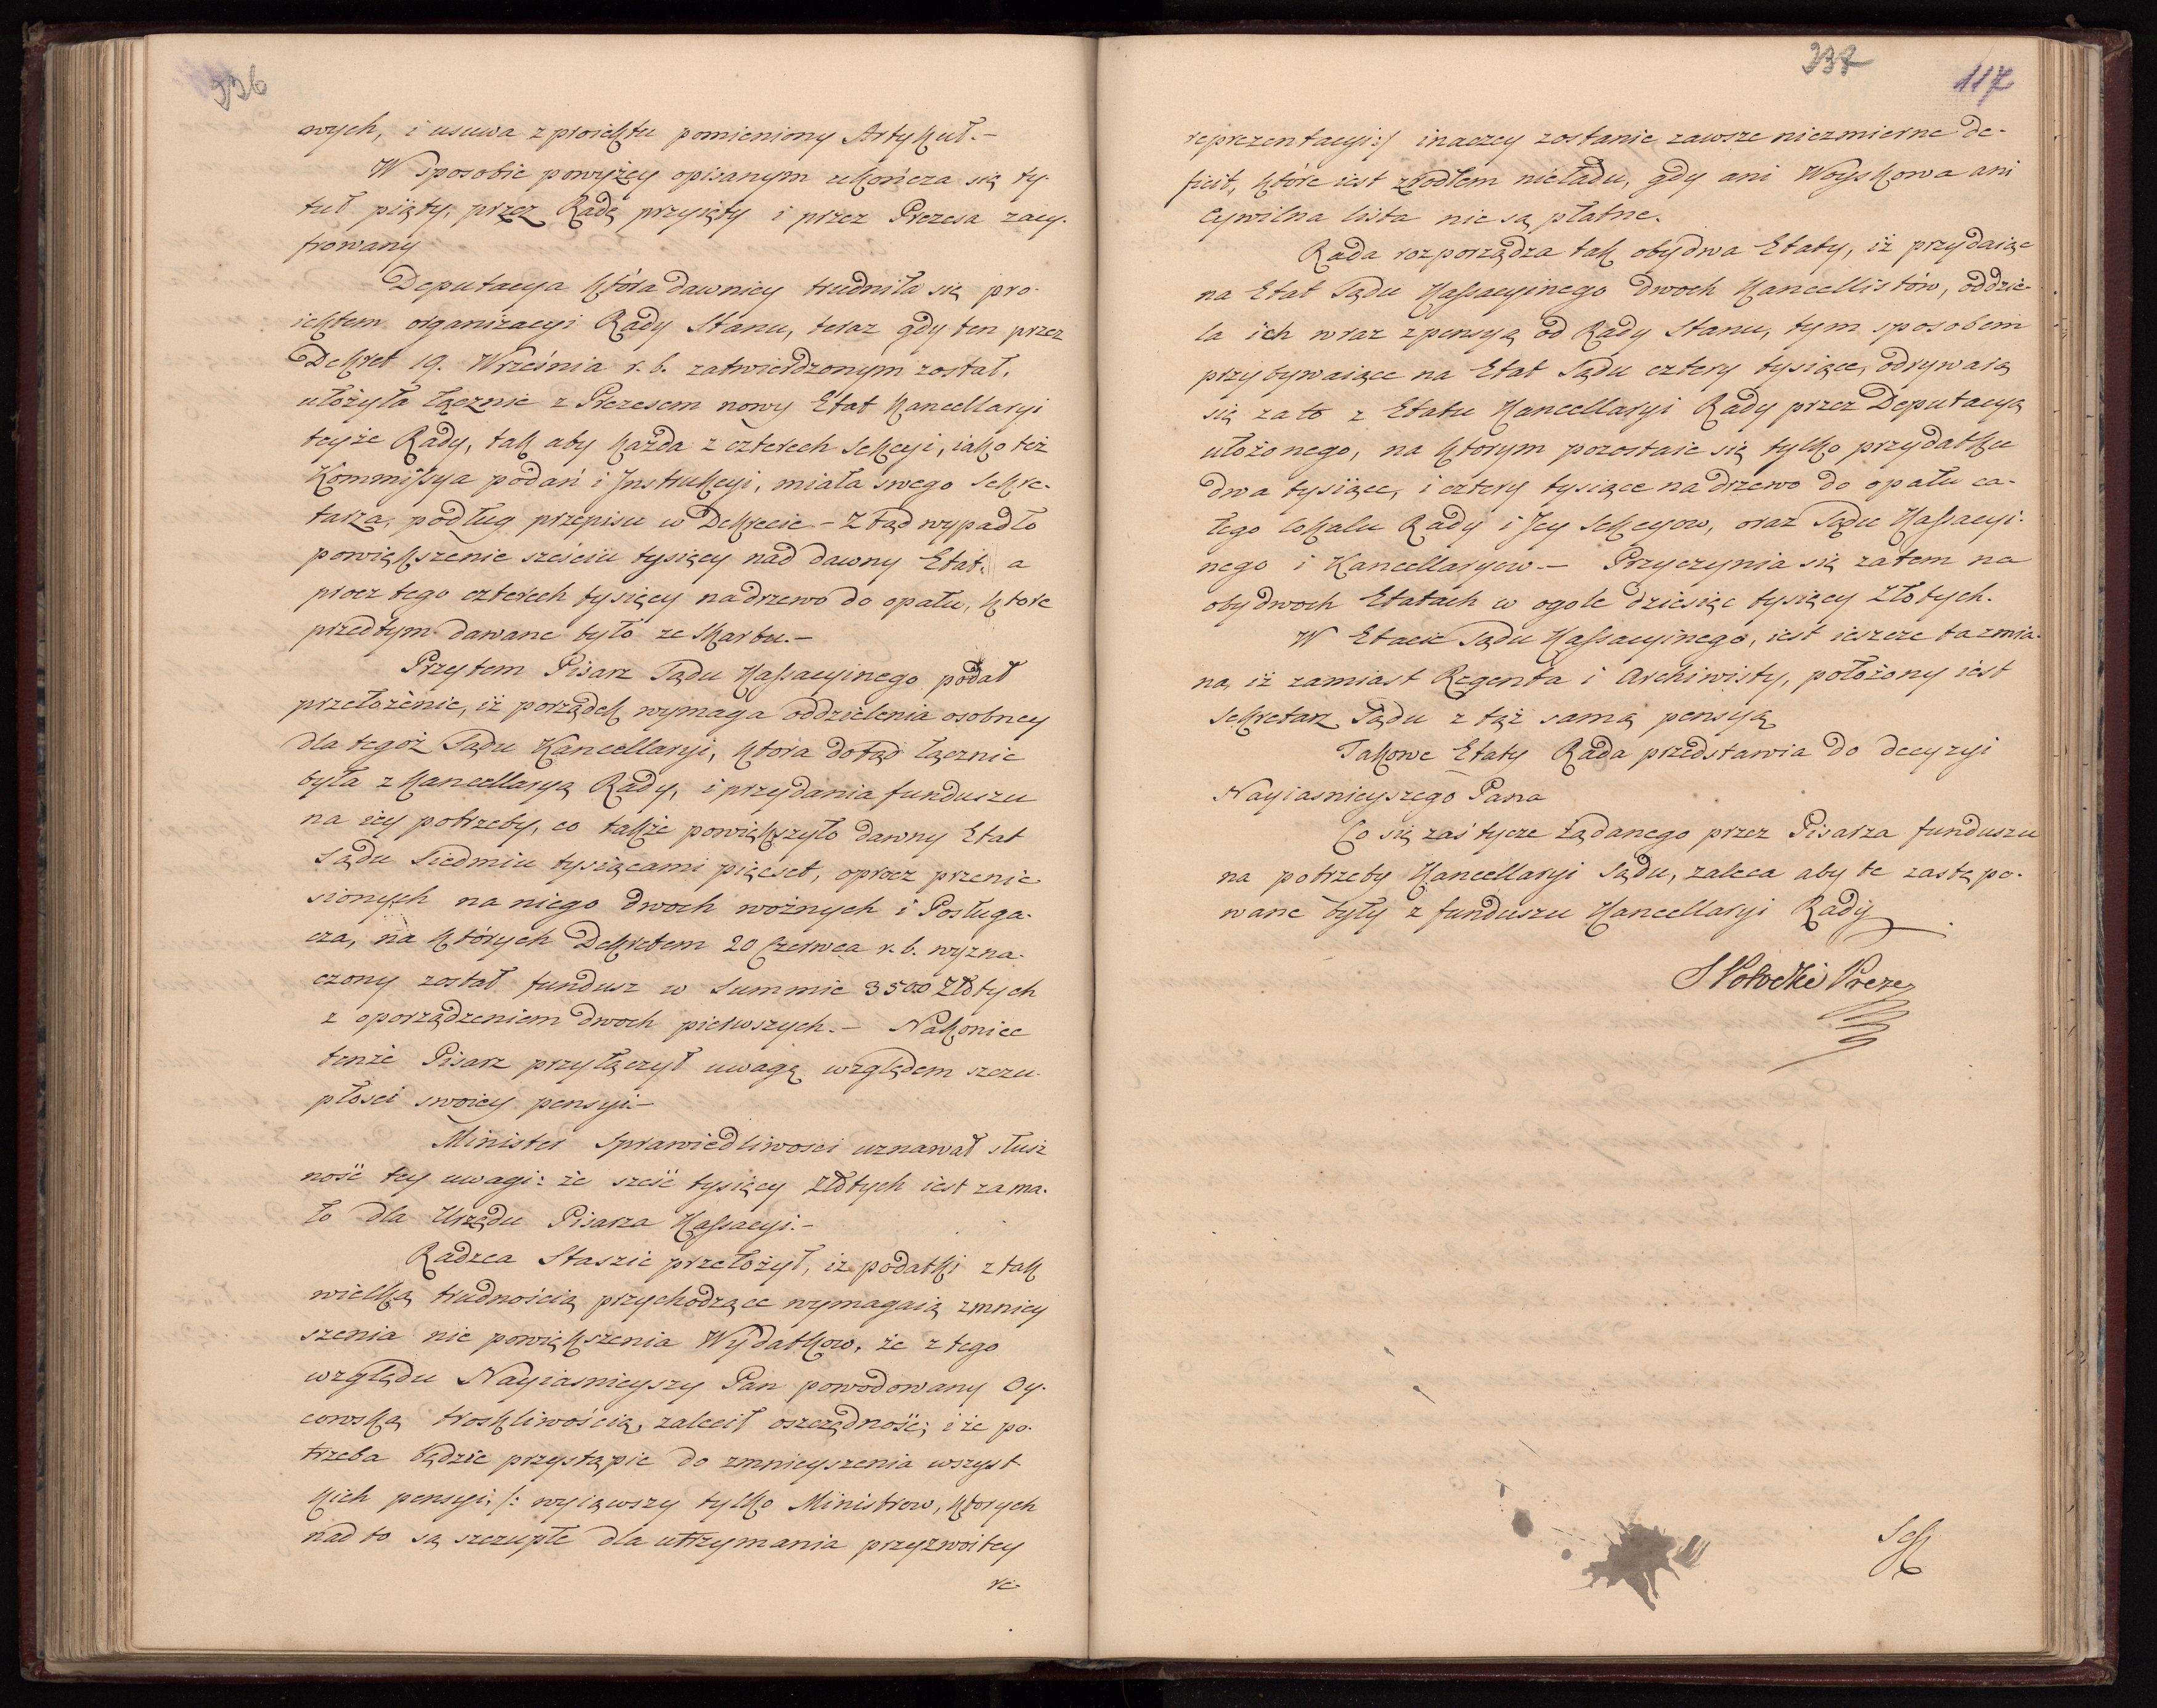 336
wnych, i usuwa z proiektu pomieniony Artykuł.–
W Sposobie powyżey opisanym ukończa się ty-
tuł piąty, przez Radę przyięty i przez Prezesa zacy-
frowany
Deputacya która dawniey trudniła się pro-
iektem organizacyi Rady Stanu, teraz gdy ten przez
Dekret 19. Września r. b. zatwierdzonym został,
ułożyła łącznie z Prezesem nowy Etat Kancellaryi
teyże Rady, tak aby każda z czterech Sekcyi, iako też
Kommissya podań i Instrukcyi, miała swego Sekre-
tarza, podług przepisu w Dekrecie – Ztąd wypadło
powiększenie sześciu tysięcy nad dawny Etat, a
procz tego czterech tysięcy na drzewo do opału, ktore
przedtym dawane było ze Skarbu.–
Przytem Pisarz Sądu Kassacyinego podał
przełożenie, iż porządek wymaga oddzielenia osobney
dla tegoż Sądu Kancellaryi, ktora dotąd łącznie
była z Kancellaryą Rady, i przydania funduszu
na iey potrzeby, co także powiększyło dawny Etat
Sądu Siedmiu tysiącami pięćset, oprocz przenie
sionych na niego dwoch woźnych i Posługa-
cza, na których Dekretem 20 Czerwca r. b. wyzna-
czony został fundusz w Summie 3500 Złotych
z oporządzeniem dwoch pierwszych.– Nakoniec
tenże Pisarz przyłączył uwagę względem szczu-
płosci swoiey pensyi–
Minister Sprawiedliwosci uznawał słusz
ność tey uwagi: że sześć tysięcy Złotych iest za ma-
ło dla Urzędu Pisarza Kassacyi.–
Radzca Staszic przełożył, iż podatki z tak
wielką trudnością przychodzące wymagaią zmniey
szenia nie powiększenia Wydatkow, że z tego
względu Nayiasnieyszy Pan powodowany Oy-
cowską troskliwością, zalecił oszczędność; i że po-
trzeba będzie przystąpic do zmnieyszenia wszyst
kich pensyi, /: wyiąwszy tylko Ministrow, ktorych
nad to są szczupłe dla utrzymania przyzwoitey
re-
337
117
reprezentacyi:/ inaczey zostanie zawsze niezmierne de-
ficit, które iest źrodłem nieładu, gdy ani Woyskowa ani
Cywilna lista nie są płatne.
Rada rozporządza tak obydwa Etaty, iż przydaiąc
na Etat Sądu Kassacyinego dwoch Kancellistów, oddzie-
la ich wraz z pensyą od Rady Stanu, tym sposobem
przybywaiące na Etat Sądu cztery tysiące, odrywaią
się za to z Etatu Kancellaryi Rady przez Deputacyą
ułożonego, na ktorym pozostaie się tylko przydatku
dwa tysiące, i cztery tysiące na drzewo do opału ca-
łego lokalu Rady i Jey Sekcyow, oraz Sądu Kassacyi-
nego i Kancellaryow.– Przyczynia się zatem na
obydwoch Etatach w ogole dziesięc tysięcy Złotych.
W Etacie Sądu Kassacyinego, iest ieszcze ta zmia-
na, iż zamiast Regenta i Archiwisty, położony iest
Sekretarz Sądu z tąż samą pensyą
Takowe Etaty Rada przedstawia do decyzyi
Nayiasnieyszego Pana
Co się zaś tycze żądanego przez Pisarza funduszu
na potrzeby Kancellaryi Sądu, zaleca aby te zastępo-
wane były z funduszu Kancellaryi Rady
S Potocki Prezes